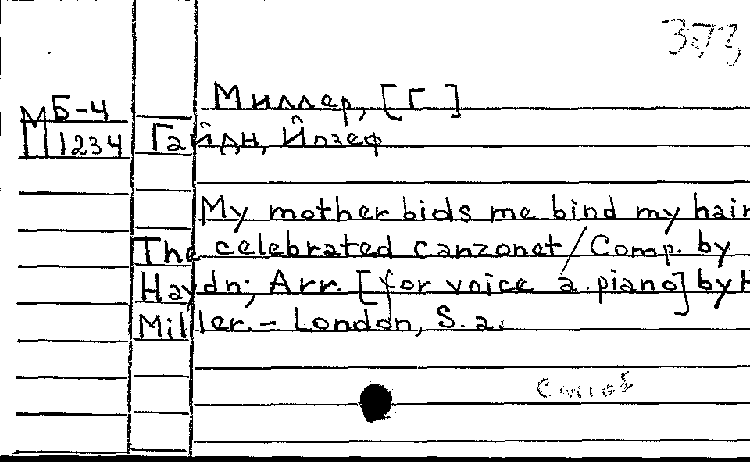 373,
Миллер, [Г ]
М Б-4
П 1234
Гайдн, Йозеф
My mother bids me bind my hair
The celebrated canzonet / Comp. by
Haydn; Arr. [for voice a. piano] by H
Miller. - London, S. a.